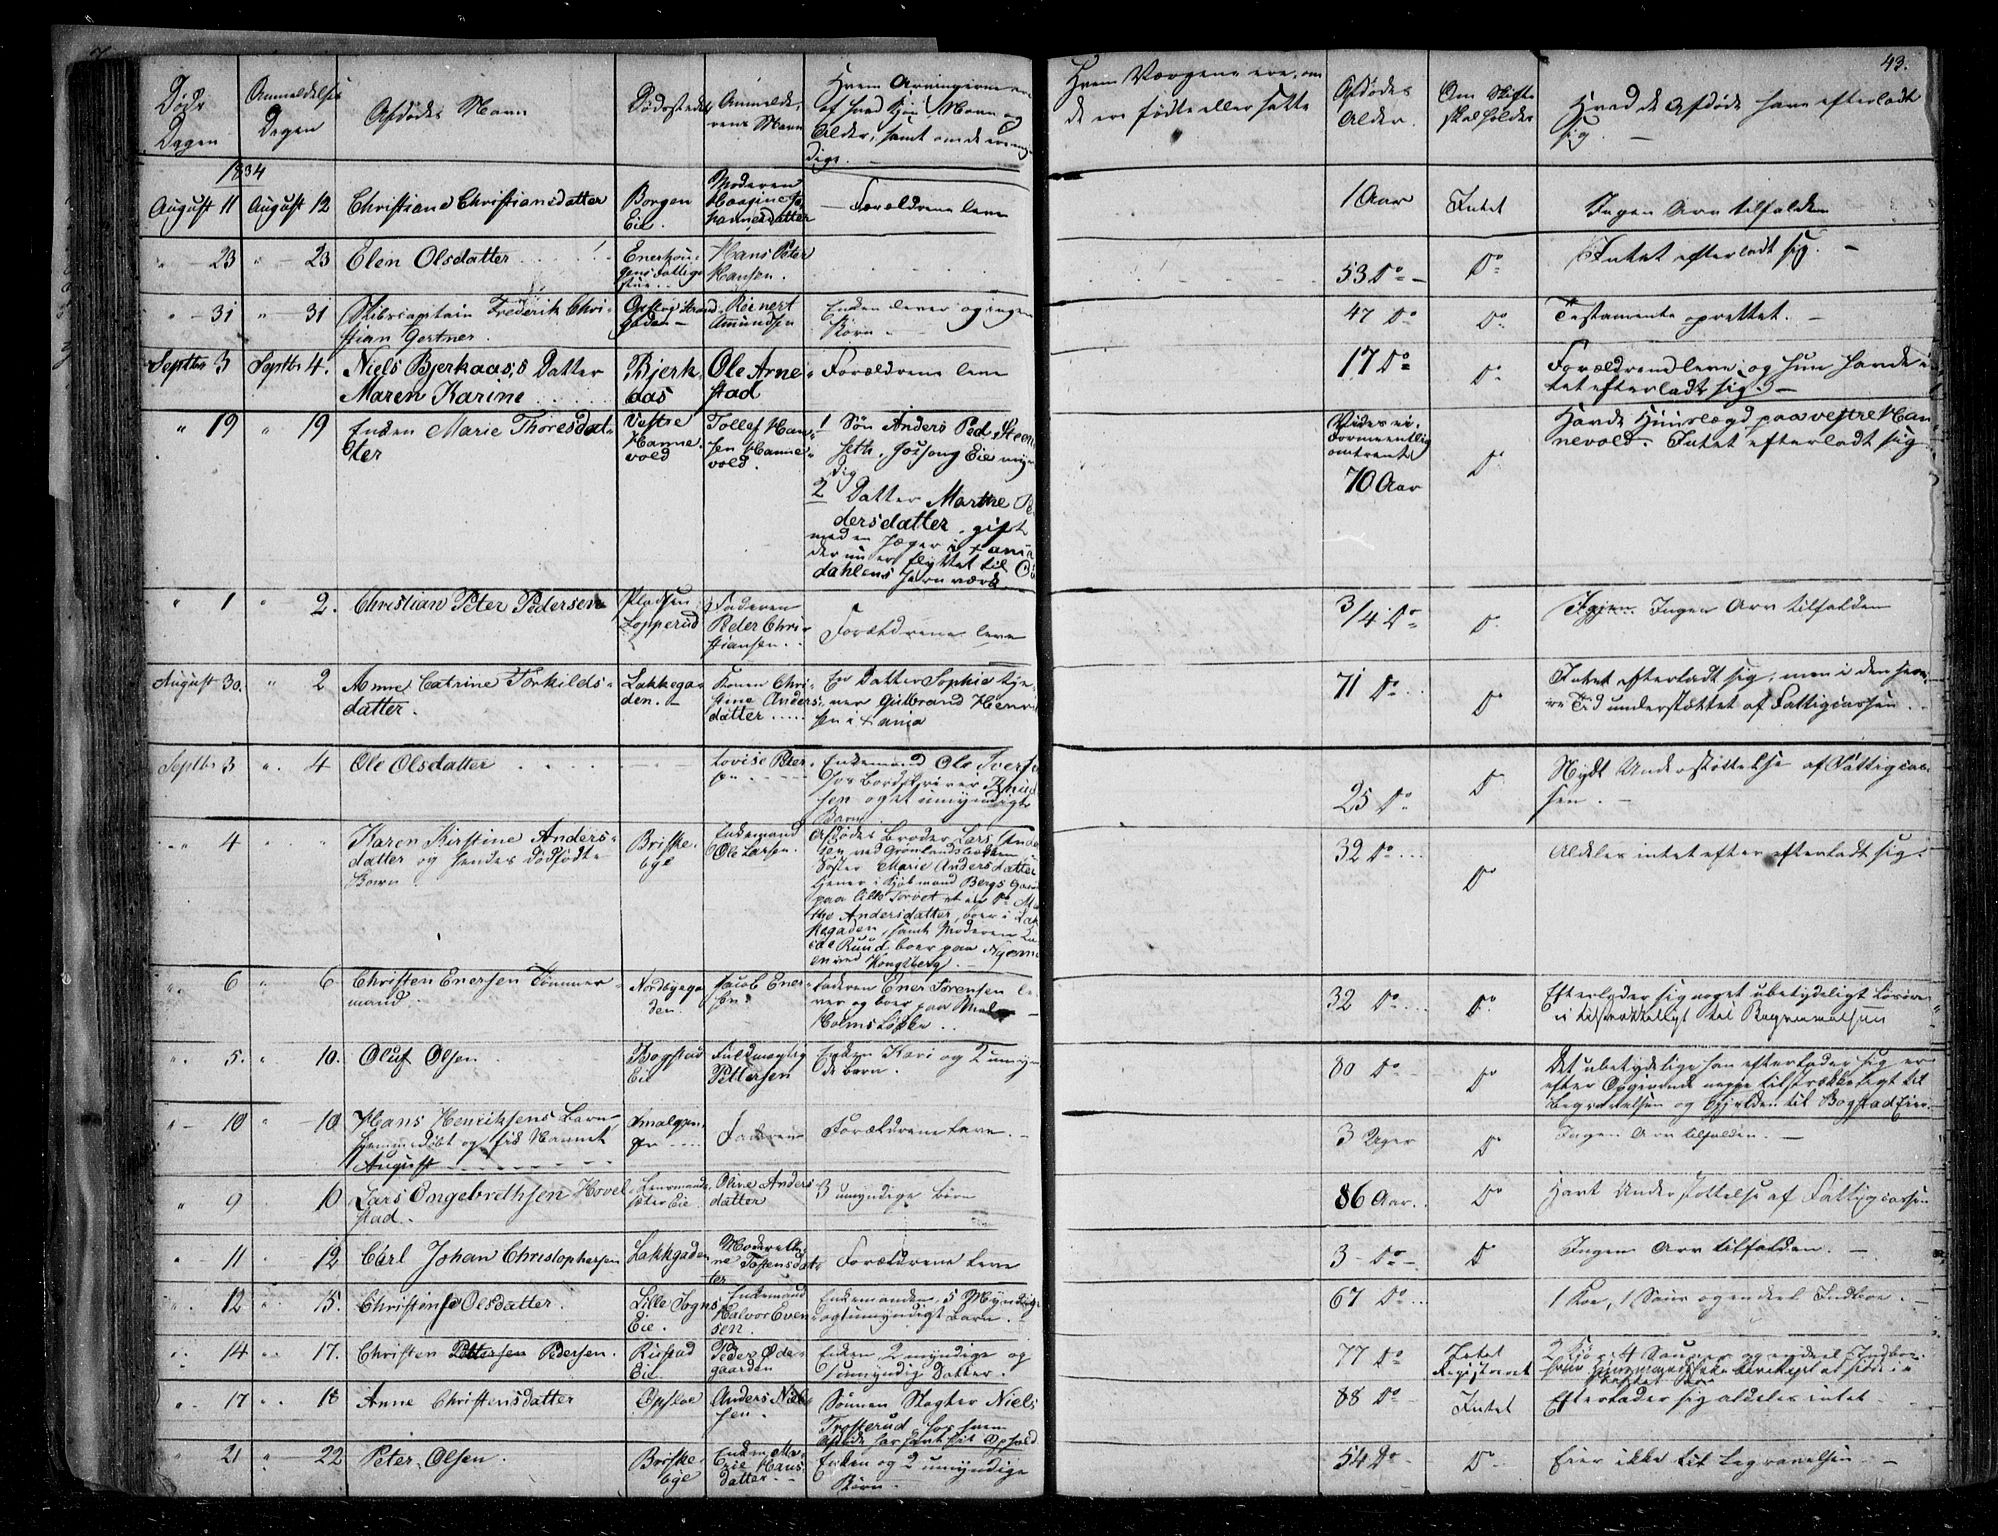 43.
Døds Dagen
Anmeldelses Dagen
Afdødes Navn
Dødsstedet
Anmelderens Navn
Hvem Arvingerne ere af hvad Kjøn, Navn og Alder, samt om de ere myndige.
Hvem Værgene ere, om de ere fødte eller satte
Afdødes Alder.
Om Skifte skal holdes
Hvad de Afdøde have efterladt sig.
1834
August 11 August 12 Christiane Christiansdatter Borgen Eie. Moderen Johannesdatter – Forældrene leve 1 Aar Intet Ingen Arv tilfalden
" – 23 " – 23 Elen Olsdatter Hans Peter Hansen. 53 Do – Do Intet efterladt sig. –
" – 31 " – 31 Skibscapitain Frederik Christian Gertner. Reinert Amundsen Enken lever og ingen Børn – 47 Do Do Testamente oprettet. –
Septbr 3 Septbr 4. Niels Bjerkaas's Datter Maren Karine Bjerkaas Ole Arnestad Forældrene leve 17 Do Do Forældrene leve, og hun havde intet efterladt sig. –
" 19 " 19 Enken Marie Thoresdatter Vestre Hannevold Tollef Hansen Hannevold. 1 Søn Anders Ped. Eie myndig
2 Datter Marthe Pedersdatter, gift med en Jæger
der nu er flyttet til
Vides ei formeentlig omtrent 70 Aar Do Havde Huuslægd paa vestre Hannevold. Intet efterladt sig
" 1 " 2. Christian Peter Pedersen Pladsen Lopperud Faderen Peder Christiansen. Forældrene leve 3/4 Do Do Ingen Arv tilfalden
August 30. " 2 Anne Catrine Torkildsdatter. Lakkegaden. – Konen Christine Andersdatter En Datter Sophie tjener Gulbrand 71 Do Do Intet efterladt sig; men i den senere Tid understøttet af Fattigcassen.
Septbr 3 " 4 Ole Olsdatter Lovise Enkemand Ole Iversen og et umyndigt Barn 25 Do Do Nydt Understøttelse af Fattigcassen. –
" 4 " " Karen Kirstine Andersdatter og hendes dødfødte Barn. Briskebye Enkemand Ole Larsen. Afdødes Broder Lars
Søster Marie Andersdatter
tjener i Kjøbmand Bergs Gaard
paa Torvet
Andersdatter, boer i Lakkegaden, samt Moderen
Ruud boer paa
ved Kongsberg. –
32 Do Do Aldeles intet efter efterladt sig.
" 6 " 6 Christen Enersen Tømmermand. Nordbyegaden. Jacob Enersen Faderen Ener Sørensen lever og boer paa Løkke 32 Do Do Efterlader sig noget ubetydeligt Løsøre ei tilstrækkeligt til Begravelsen
" 5. " 10. Oluf Olsen Bogstad Eie Fuldmægtig Pettersen Enken Kari og 2 umyndige børn. 80 Do Do Det ubetydelige han efterlader sig er efter Opgivende neppe tilstrækkeligt til Begravelsen og Gjælden til Bogstad Eier.
" – 10 " – 10 Hans Henriksens Barn hjemmedøbt og fik Navnet August Faderen Forældrene leve. – 3 Uger Do Ingen Arv tilfalden. –
" 9 " 10 Lars Engebrethsen Hovelstad. Eie. Oline Andersdatter 3 umyndige børn 86 Aar Do Havt Understøttelse af Fattigcassen
" 11 " 12 Carl Johan Christophersen Lakkegaden Forældrene leve 3 – Do – Do Ingen Arv tilfalden. –
" 12 " 15. Christine Olsdatter. Lille Sogns Eie. Enkemand Halvor Evensen. Enkemanden, 5 Myndige og et umyndigt Barn. 67 Do 1 Koe, 1 Sau og endeel Indboe. –
" 14 " 17. Christen Pettersen Pedersen. Rustad Eie Peder Ødegaarden Enken 2 myndige og 1 umyndig Datter. 77 Do Intet Registreret 2 Kjør 4 Sauer og endeel Indboe.
" 17 " 18 Anne Christensdatter Opsloe Anders Nielsen. Sønnen Slagter Niels Trosterud, hos hvem Afdøde har havt sit Ophold 88 Do Intet Efterlader sig aldeles intet –
" 21 " 22 Peter Olsen. Briskebye Enken Marie Hansdatter. Enken og 2 umyndige Børn – 54 Do Do Eier ikke til Begravelsen –